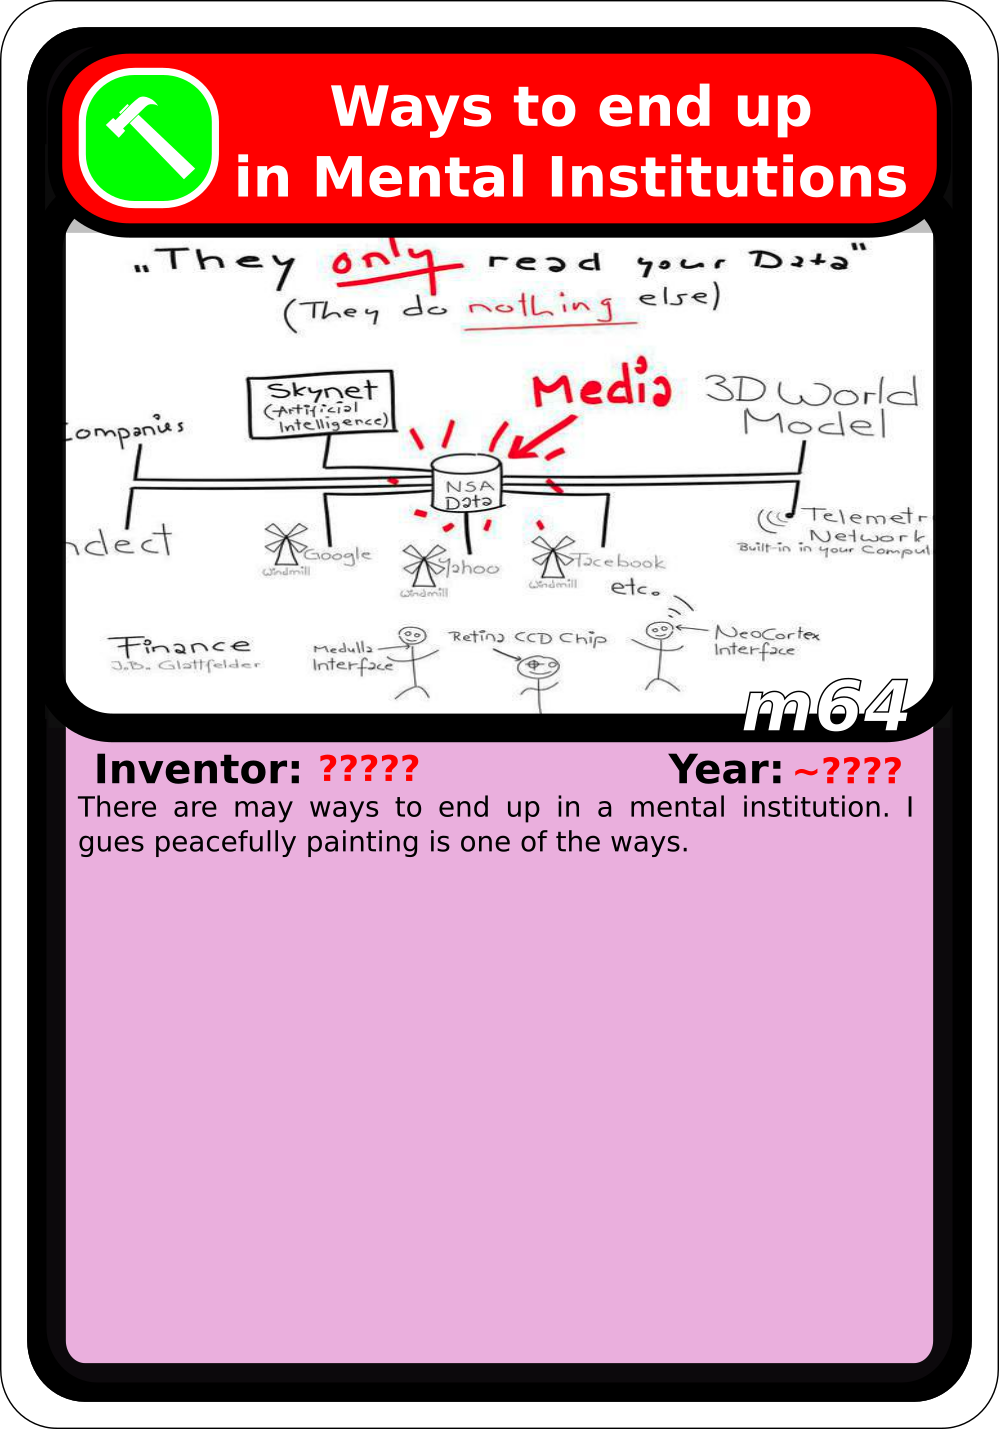 Ways to end up
in Mental Institutions
„They only read your Data"
(They do nothing else)
Media
Skynet
(Artificial
Intelligence)
3D World
Model
ompanies
NSA
Data
ndect
Google
Windmill
Yahoo
Windmill
Facebook
Windmill
etc.
Telemetr
Network
Built-in in your Comput
Finance
J.B. Glattfelder
Medulla
Interface
Retina CCD Chip
NeoCortex
Interface
m64
Inventor: ????? Year: ~????
There are may ways to end up in a mental institution. I
gues peacefully painting is one of the ways.